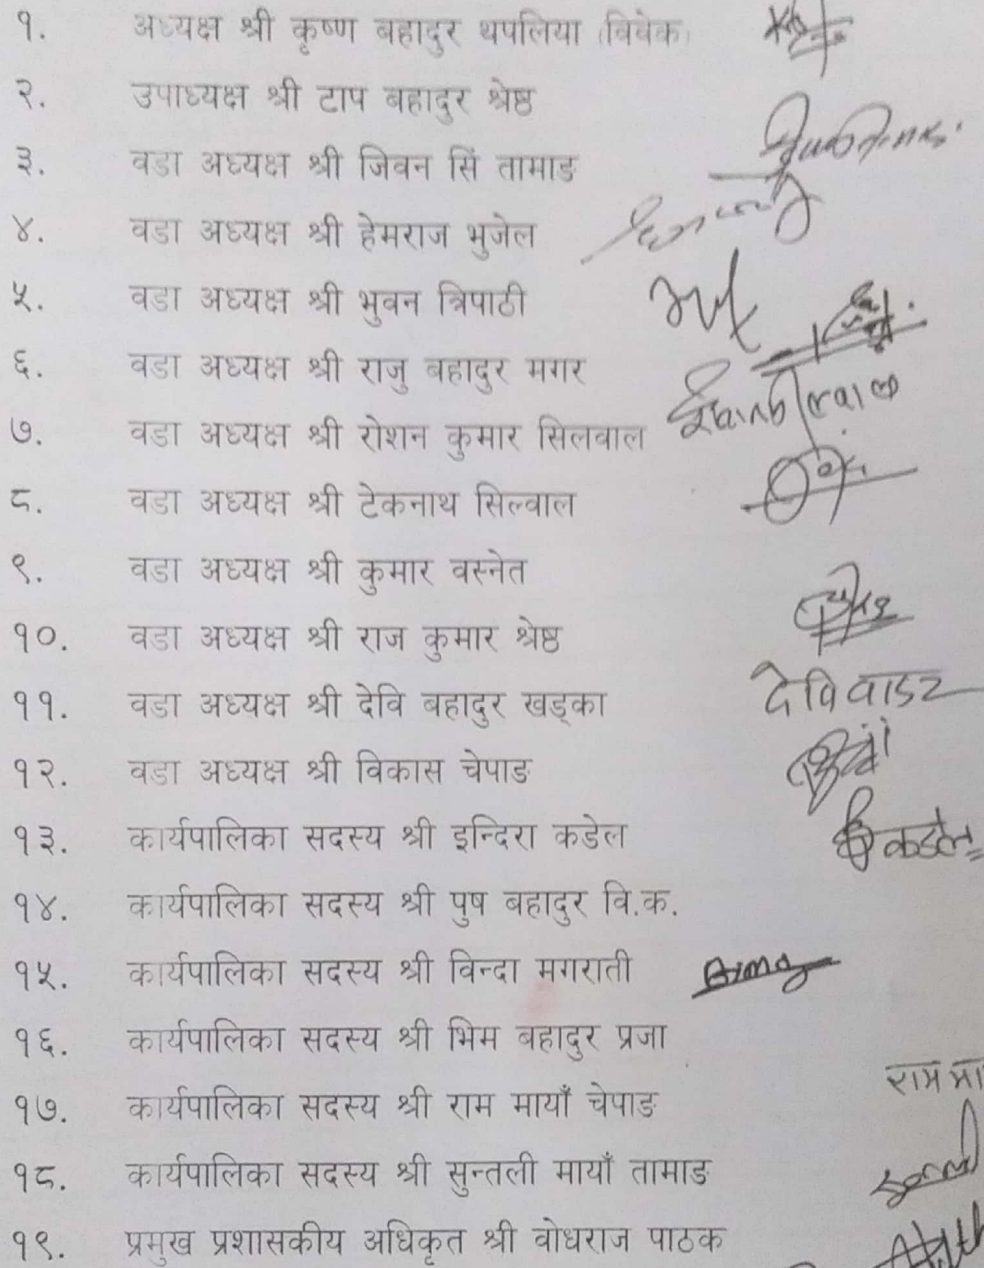 १. अध्यक्ष श्री कृष्ण बहादुर थपलिया (विवेक)
२. उपाध्यक्ष श्री टाप बहादुर श्रेष्ठ
३. वडा अध्यक्ष श्री जिवन सिं तामाङ
४. वडा अध्यक्ष श्री हेमराज भुजेल
५. वडा अध्यक्ष श्री भुवन त्रिपाठी
६. वडा अध्यक्ष श्री राजु बहादुर मगर
७. वडा अध्यक्ष श्री रोशन कुमार सिलवाल
८. वडा अध्यक्ष श्री टेकनाथ सिल्वाल
९. वडा अध्यक्ष श्री कुमार वस्नेत
१०. वडा अध्यक्ष श्री राज कुमार श्रेष्ठ
११. वडा अध्यक्ष श्री देवि बहादुर खड्का
१२. वडा अध्यक्ष श्री विकास चेपाङ
१३. कार्यपालिका सदस्य श्री इन्दिरा कडेल कडेल
१४. कार्यपालिका सदस्य श्री पुष बहादुर वि.क.
१५. कार्यपालिका सदस्य श्री विन्दा मगराती
१६. कार्यपालिका सदस्य श्री भिम बहादुर प्रजा
१७. कार्यपालिका सदस्य श्री राम मायाँ चेपाङ
१८. कार्यपालिका सदस्य श्री सुन्तली मायाँ तामाङ
१९. प्रमुख प्रशासकीय अधिकृत श्री वोधराज पाठक